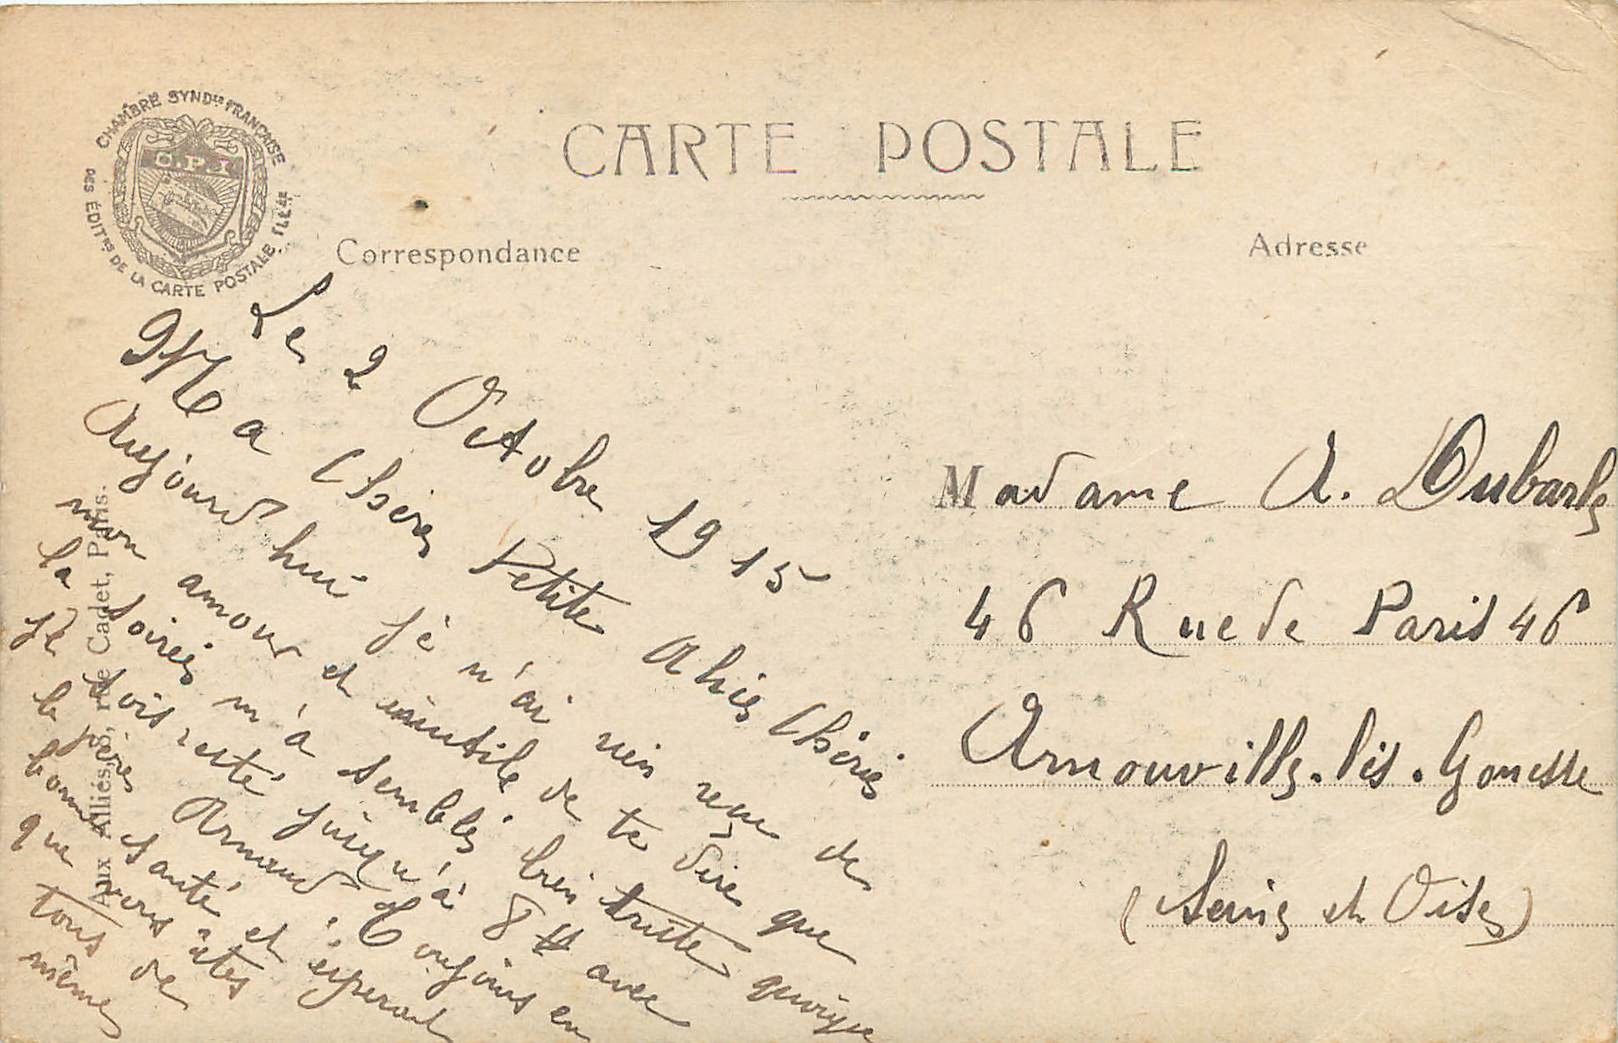 CARTE POSTALE
CHAMBRE SYND^LE FRANÇAISE
DES ÉDIT^RS DE LA CARTE POSTALE ILL^ÉE
C.P.I
Correspondance
Adresse
Le 2 Octobre 1915
Ma Chère Petite Chérie
Aujourd hui je n'ai rien reçu de
mon amour et inutile de te dire que
la soirée m'a semblée bien triste quoique
je sois resté jusqu'à 8 H avec
le père Arnaud. Toujours en
bonne santé et espérant
que vous êtes
tous de
même
Madame A. Dubarle
46 Rue de Paris 46
Arnouville-lès-Gonesse
(Seine et Oise)
Aux Alliés, rue Cadet, Paris.